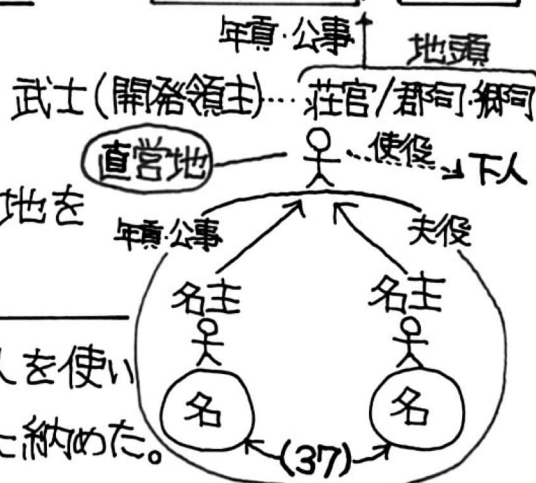 年貢・公事
地頭
武士(開発領主)…荘官/郡司・郷司
直営地
使役
下人
地を
年貢・公事
夫役
名主
名主
人を使い
名
名
に納めた。
(37)